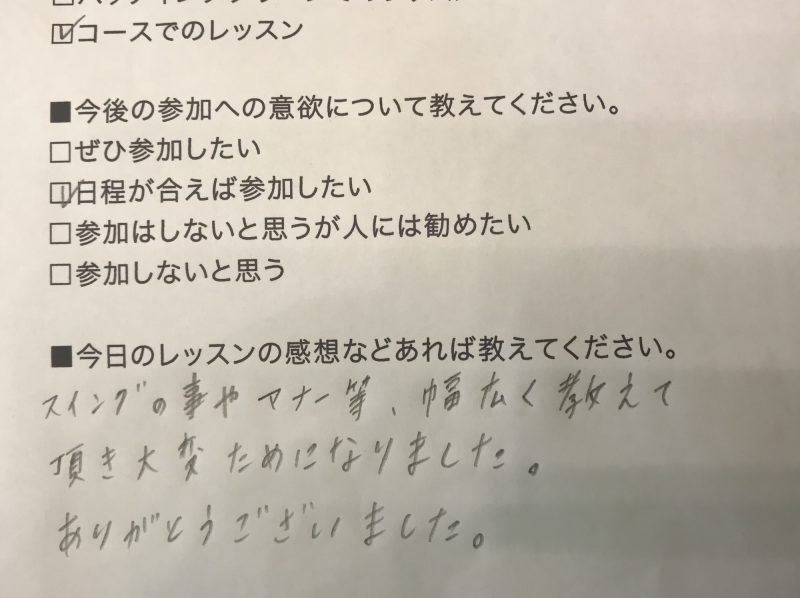 ☑コースでのレッスン
■今後の参加への意欲について教えてください。
□ぜひ参加したい
☑日程が合えば参加したい
□参加はしないと思うが人には勧めたい
□参加しないと思う
■今日のレッスンの感想などあれば教えてください。
スイングの事やマナー等、幅広く教えて
頂き大変ためになりました。
ありがとうございました。